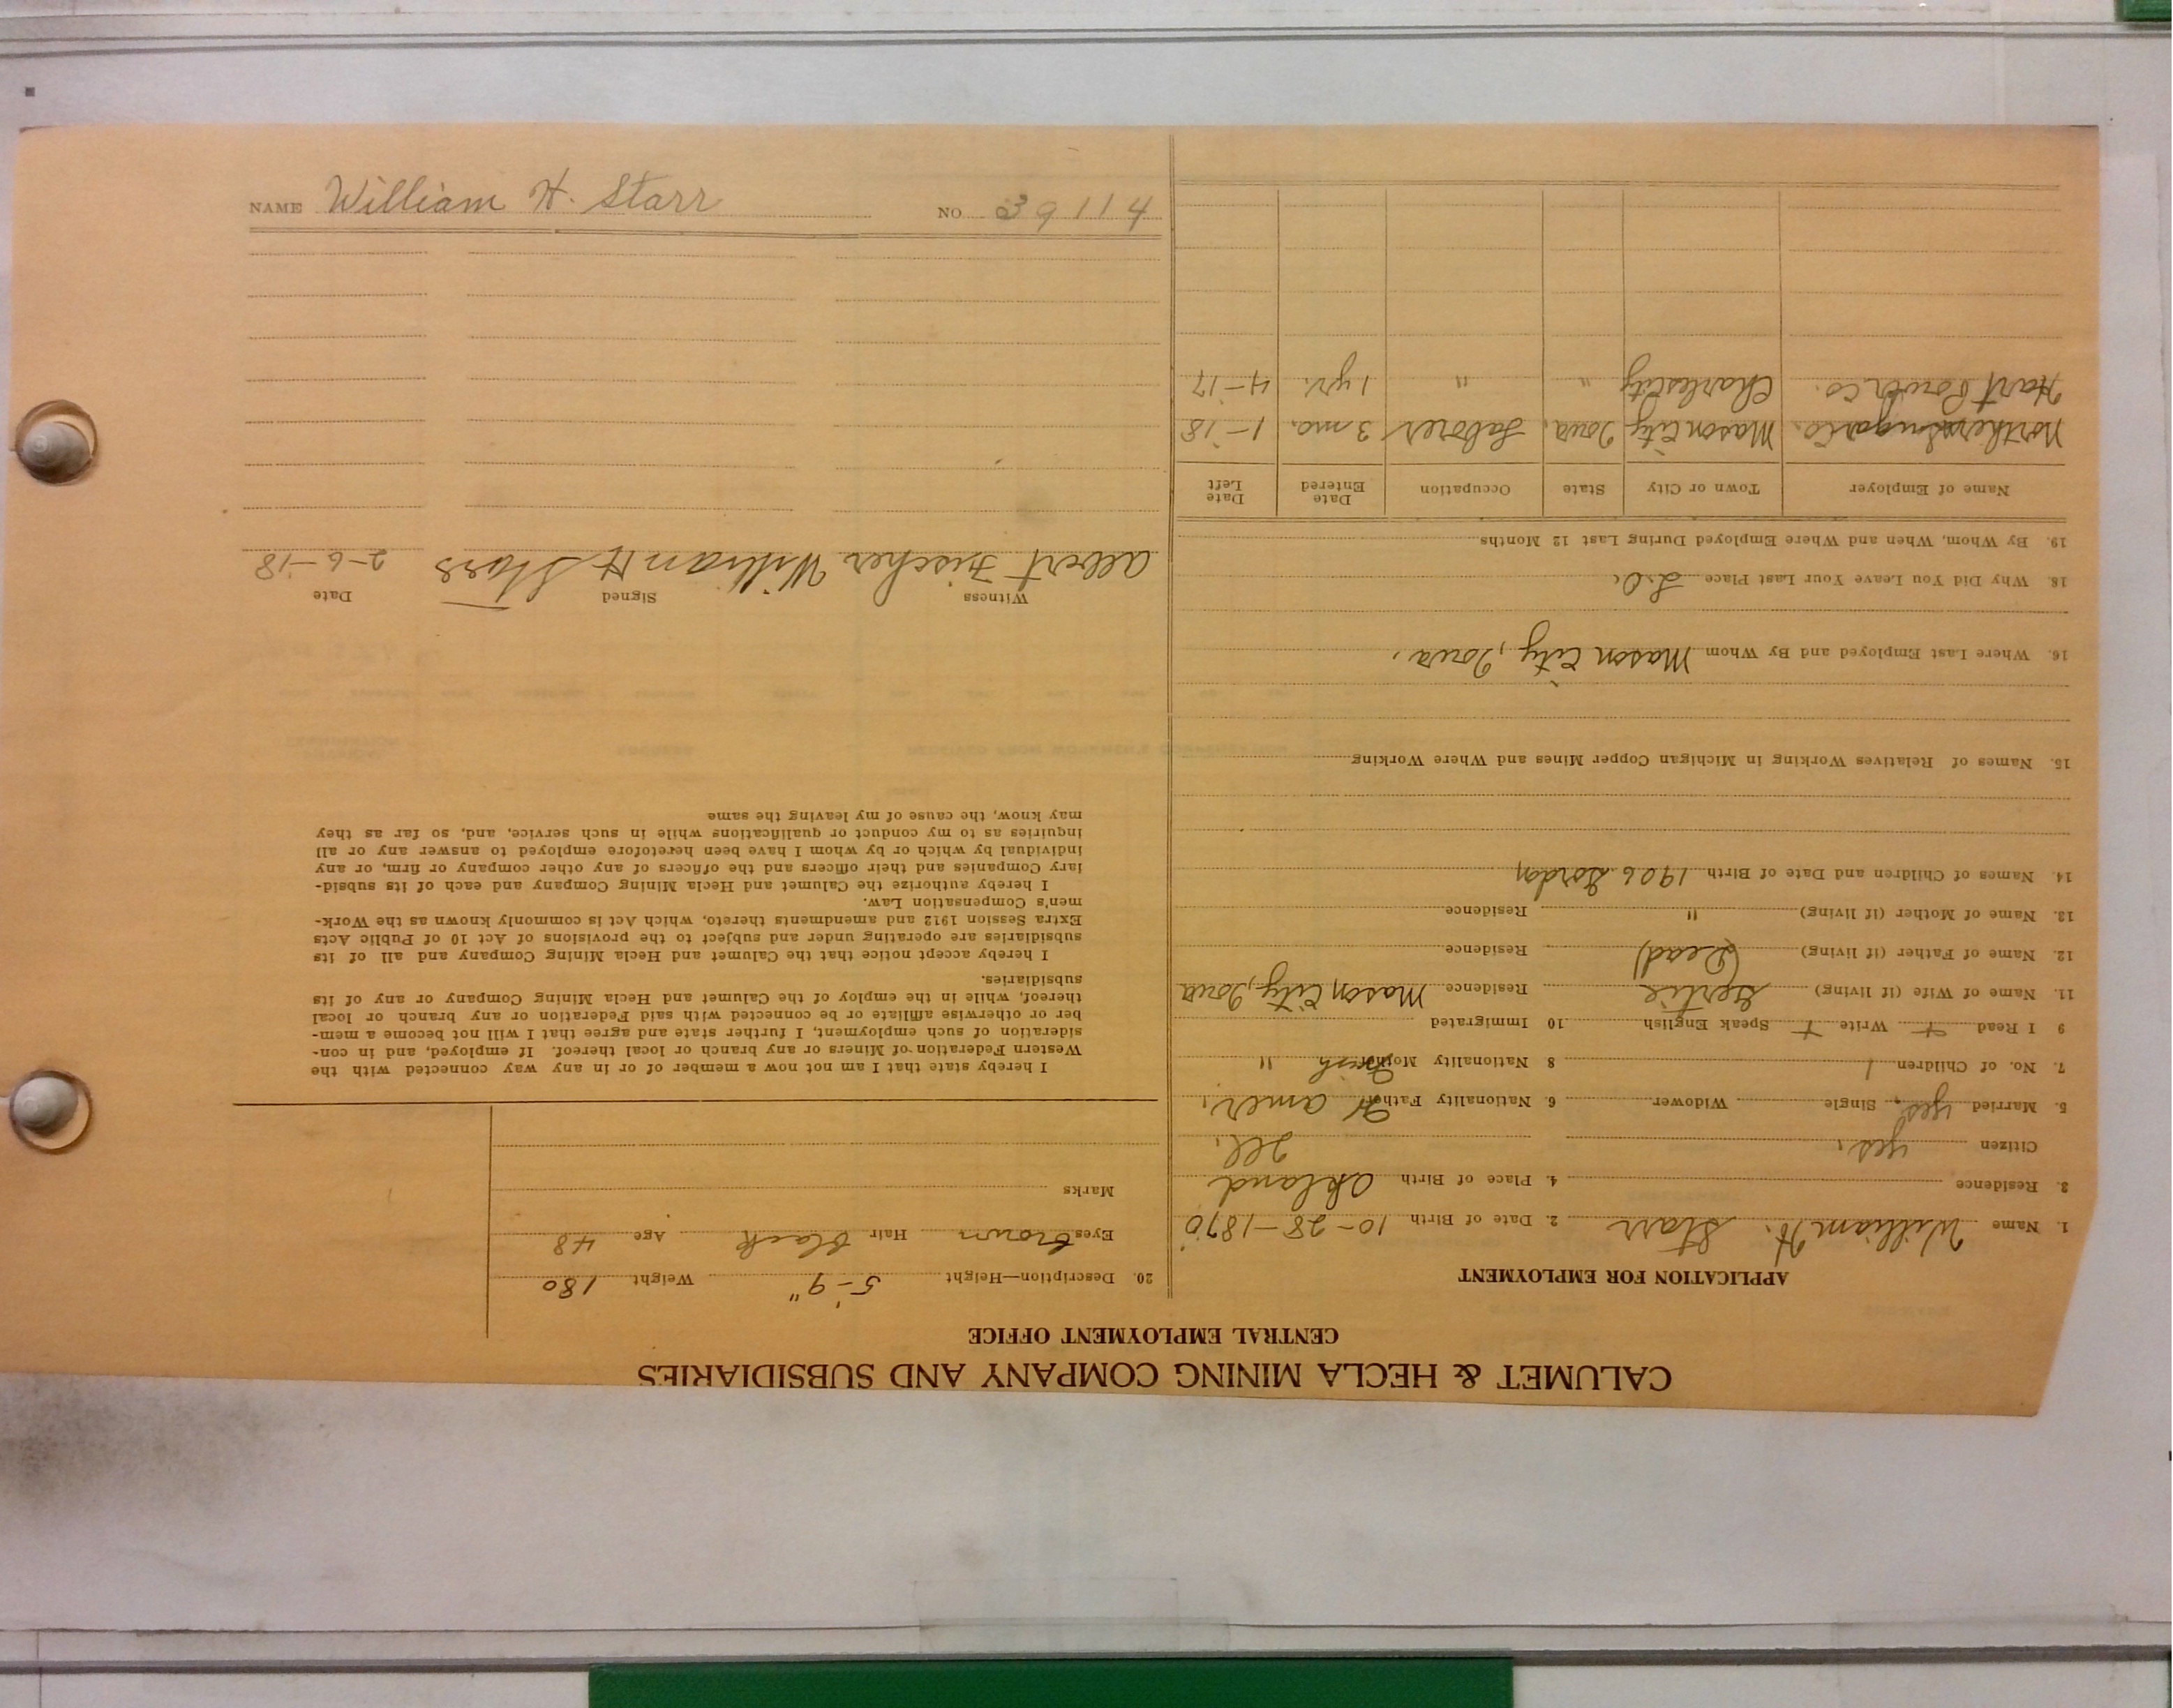 NAME William H. Starr NO. 39114
CALUMET & HECLA MINING COMPANY AND SUBSIDIARIES
CENTRAL EMPLOYMENT OFFICE
APPLICATION FOR EMPLOYMENT
1. Name William H. Starr 2. Date of Birth 10-28-1870
3. Residence 4. Place of Birth Okland
Ill.
Citizen yes.
5. Married yes. Single Widower 6. Nationality Father amer.
7. No. of Children 1 8 Nationality Mother "
9 I Read + Write + Speak English 10 Immigrated
11. Name of Wife (if living) Gertie Residence Mason City, Iowa
12. Name of Father (if living) (Dead) Residence
13. Name of Mother (if living) " Residence
14. Names of Children and Date of Birth 1906 Gordon
15. Names of Relatives Working in Michigan Copper Mines and Where Working
16. Where Last Employed and By Whom Mason City, Iowa.
18. Why Did You Leave Your Last Place L.O.
19. By Whom, When and Where Employed During Last 12 Months
Name of Employer Town or City State Occupation Date Entered Date Left
Northern Sugar Co. Mason City Iowa. Laborer 3 mo. 1-'18
Hart Co. Charles City " " 1 yr. 4-'17
20. Description—Height 5'-9" Weight 180
Eyes brown Hair black Age 48
Marks
I hereby state that I am not now a member of or in any way connected with the
Western Federation of Miners or any branch or local thereof. If employed, and in con-
sideration of such employment, I further state and agree that I will not become a mem-
ber or otherwise affiliate or be connected with said Federation or any branch or local
thereof, while in the employ of the Calumet and Hecla Mining Company or any of its
subsidiaries.
I hereby accept notice that the Calumet and Hecla Mining Company and all of its
subsidiaries are operating under and subject to the provisions of Act 10 of Public Acts
Extra Session 1912 and amendments thereto, which Act is commonly known as the Work-
men's Compensation Law.
I hereby authorize the Calumet and Hecla Mining Company and each of its subsid-
iary Companies and their officers and the officers of any other company or firm, or any
individual by which or by whom I have been heretofore employed to answer any or all
inquiries as to my conduct or qualifications while in such service, and, so far as they
may know, the cause of my leaving the same
Witness Signed Date
Albert Fischer William H Starr 2-6-'18